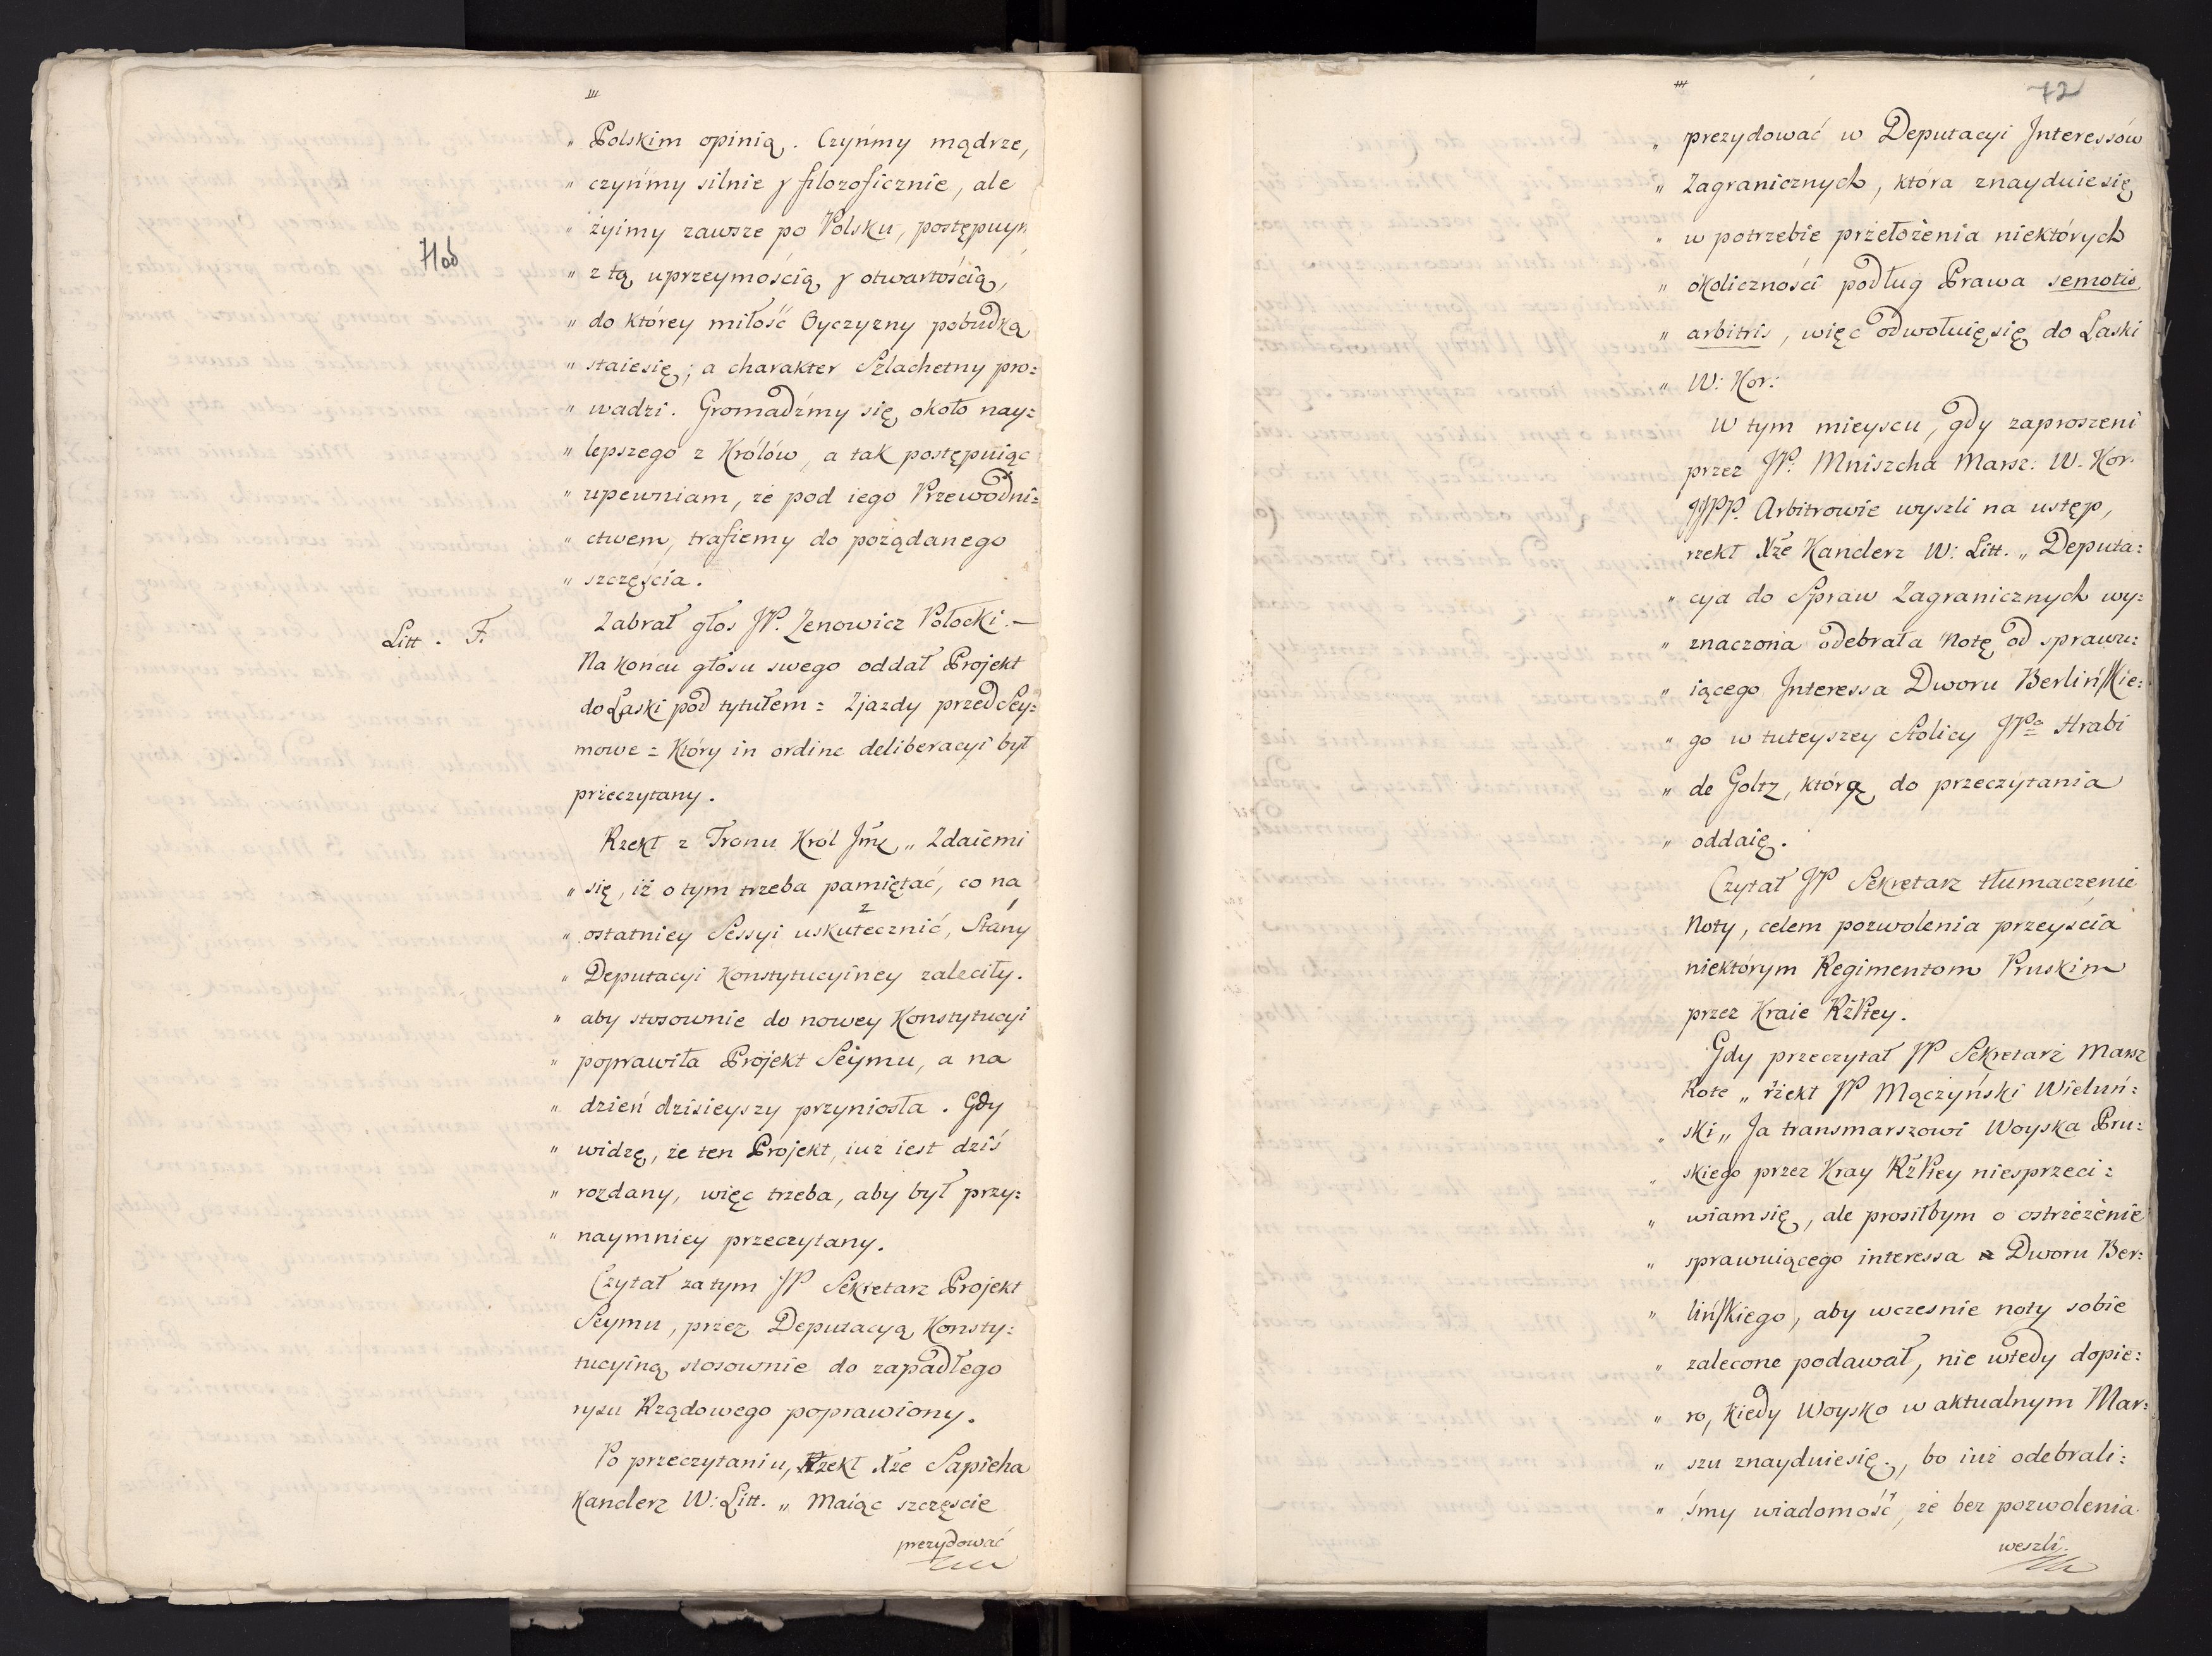 „ Polskim opinią. Czyńmy mądrze,
„ czyńmy silnie y filozoficznie, ale
„ żyimy zawsze po Polsku, postępuym
„ z tą uprzeymością y otwartością,
„ do którey miłość Oyczyzny pobudką
„ staiesię; a charakter Szlachetny pro=
„ wadzi. Gromadźmy się około nay=
„ lepszego z Królów, a tak postępuiąc
„ upewniam, że pod iego Przewodni=
„ ctwem, trafiemy do pożądanego
„ szczęścia.
Litt. F.
Zabrał głos JP. Zenowicz Połocki. —
Na końcu głosu swego oddał Projekt
do Laski pod tytułem = Zjazdy przed Sey=
mowe = Który in ordine deliberacyi był
przeczytany.
Rzekł z Tronu Krol Jmć „ Zdaiemi
„ się, iż o tym trzeba pamiętać, co na
„ ostatniey Sessyi uskutecznić, Stany
„ Deputacyi Konstytucyiney zaleciły.
„ aby stosownie do nowey Konstytucyi
„ poprawiła Projekt Seymu, a na
„ dzień dzisieyszy przyniosła. Gdy
„ widzę, że ten Projekt, iuż iest dziś
„ rozdany, więc trzeba, aby był przy=
„ naymniey przeczytany.
Czytał zatym JP Sekretarz Projekt
Seymu, przez Deputacyą Konsty=
tucyiną stosownie do zapadłego
rysu Rządowego poprawiony.
Po przeczytaniu, Rzekł Xże Sapieha
Kanclerz W: Litt. „ Maiąc szczęście
prezydować
72
„ prezydować w Deputacyi Interessów
„ Zagranicznych, która znayduie się
„ w potrzebie przełożenia niektórych
„ okoliczności podług Prawa semotis
„ arbitris, więc odwołuię się do Laski
„ W: Kor:
W tym mieyscu, gdy zaproszeni
przez JP: Mniszcha Marsz: W. Kor.
JJPP. Arbitrowie wyszli na ustęp,
rzekł Xże Kanclerz W: Litt. „ Deputa=
„ cya do Spraw Zagranicznych wy=
„ znaczona odebrała Notę od sprawu=
„ iącego Interessa Dworu Berlińskie=
„ go w tuteyszey Stolicy JPa Hrabi
„ de Goltz, którą do przeczytania
„ oddaię.
Czytał JP Sekretarz tłumaczenie
Noty, celem pozwolenia przeyścia
niektórym Regimentom Pruskim
przez Kraie RżPltey.
Gdy przeczytał JP Sekretarz Marsz
Notę „ rzekł JP Mączyński Wieluń=
„ ski „ Ja transmarszowi Woyska Pru=
„ skiego przez Kray RżPltey niesprzeci=
„ wiamsię, ale prosiłbym o ostrzeżenie
„ sprawuiącego interessa Dworu Ber=
„ lińskiego, aby wczesnie noty sobie
„ zalecone podawał, nie wtedy dopie=
„ ro, kiedy Woysko w aktualnym Mar=
„ szu znayduiesię, bo iuż odebrali=
„ śmy wiadomość, że bez pozwolenia
weszli.